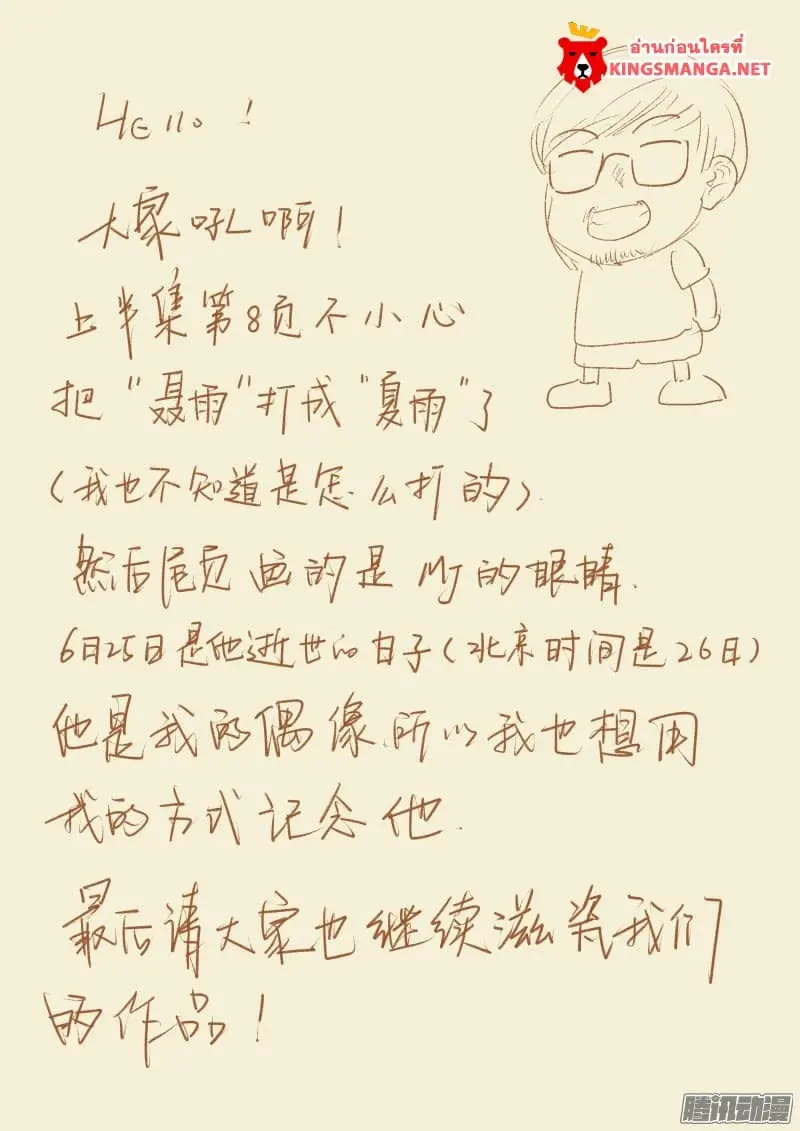 อ่านก่อนใครที่
KINGSMANGA.NET
Hello!
大家吼啊!
上半集第8页不小心
把“聂雨”打成“夏雨”了
(我也不知道是怎么打的).
然后尾页画的是MJ的眼睛.
6月25日是他逝世的日子(北京时间是26日)
他是我的偶像.所以我也想用
我的方式记念他.
最后请大家也继续滋瓷我们
的作品!
腾讯动漫